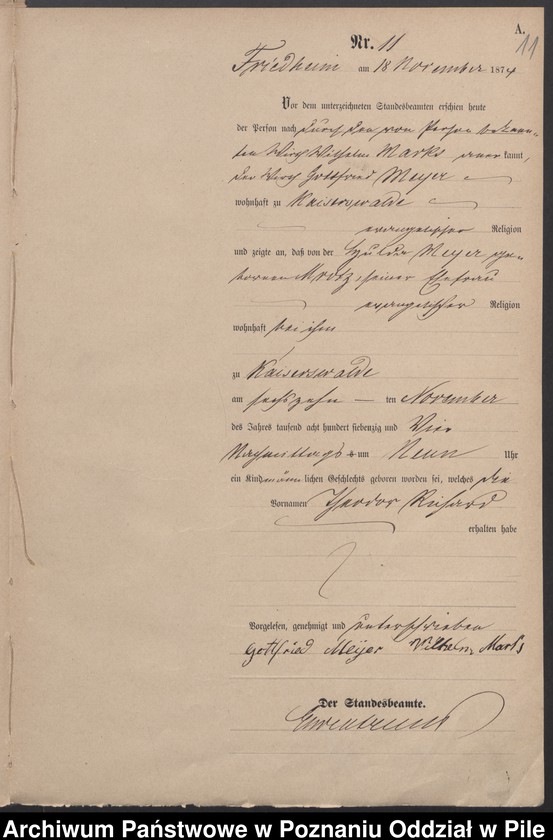 A.
11
Nr. 11
Friedheim am 18 November 1874
Vor dem unterzeichneten Standesbeamten erschien heute
der Person nach durch den von Person bekann-
ten Wirth Wilhelm Marks anerkannt,
der Wirth Gottfried Meyer
wohnhaft zu Kaiserswalde
evangelischer Religion
und zeigte an, daß von der Hulda Meyer ge-
bornen Krotz, seiner Ehefrau
evangelischer Religion
wohnhaft bei ihm
zu Kaiserswalde
am sechszehn ten November
des Jahres tausend acht hundert siebenzig und Vier
Nachmittags um Neun Uhr
ein Kind männlichen Geschlechts geboren worden sei, welches die
Vornamen Theodor Richard
erhalten habe
Vorgelesen, genehmigt und unterschrieben
Gottfried Meyer Wilhelm Marks
Der Standesbeamte.
Archiwum Państwowe w Poznaniu Oddział w Pile